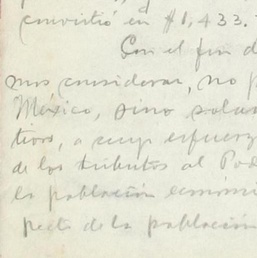 convirtió en $1,433.
Con el fin d
mos considerar, no p
México, sino solam
tivos, a cuyo esfuerz
de los tributos al Pod
la población económi
pecto de la población